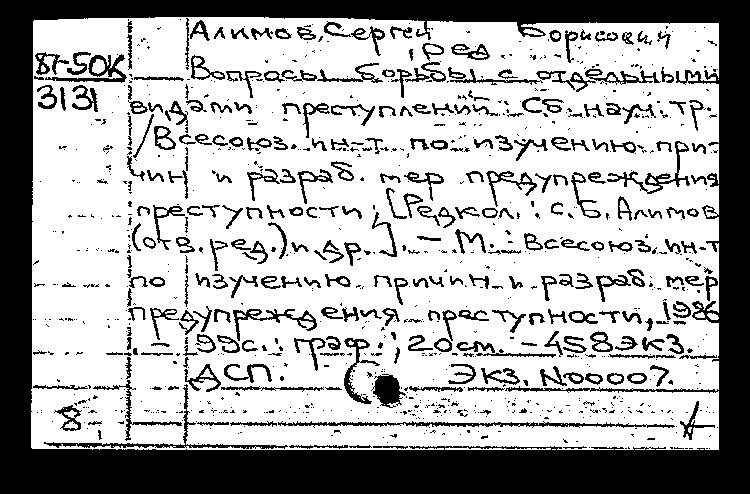 Алимов, Сергей Борисович
, ред.
87-50К
Вопросы борьбы с отдельными
3131
видами преступлений: Сб. науч. тр.
/ Всесоюз. ин-т по изучению при-
чин и разраб. мер предупреждения
преступности; [Редкол.: С.Б. Алимов
(отв. ред.) и др.]. – М.: Всесоюз. ин-т
по изучению причин и разраб. мер
предупреждения преступности, 1986
. – 99с.: граф.; 20см. – 458экз.
ДСП. Экз. N00007.
8 А